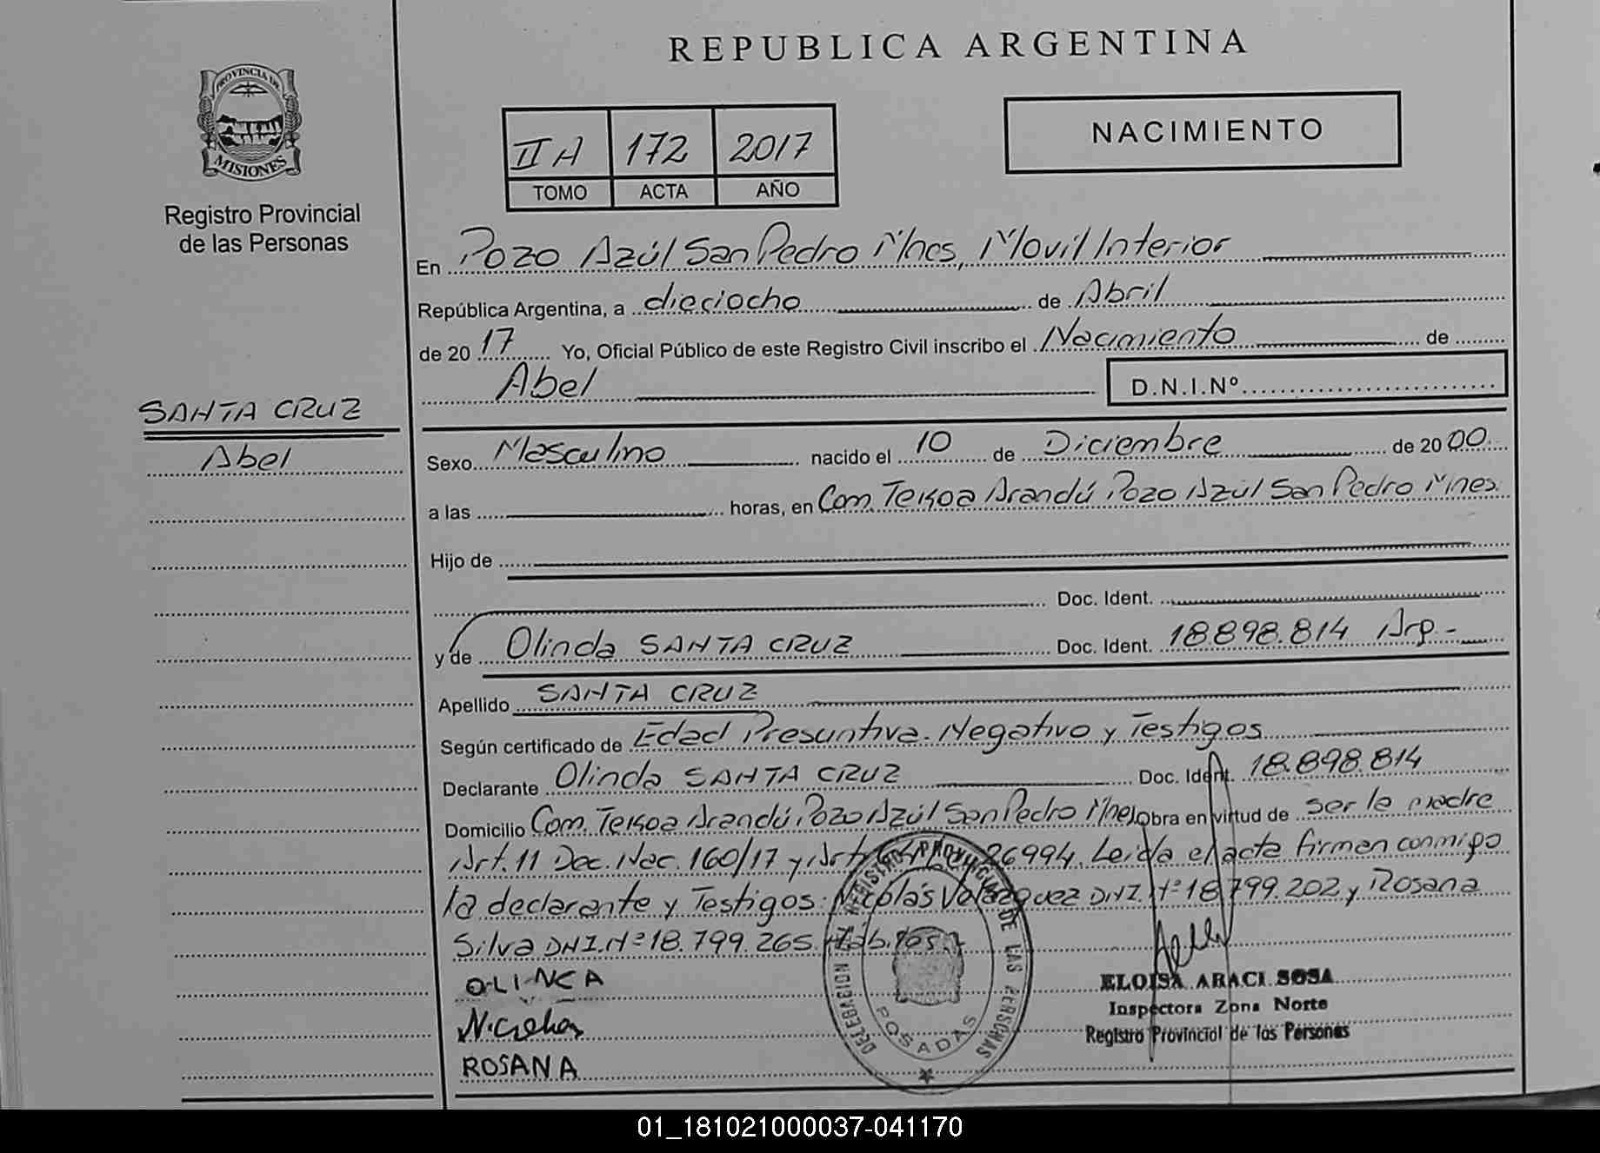 REPUBLICA ARGENTINA
PROVINCIA DE
MISIONES
Registro Provincial
de las Personas
II A 172 2017
TOMO ACTA AÑO
NACIMIENTO
En Pozo Azúl San Pedro Mnes, Movil Interior
República Argentina, a dieciocho de Abril
de 2017 Yo, Oficial Público de este Registro Civil inscribo el Nacimiento de
Abel D.N.I.Nº
SANTA CRUZ
Abel
Sexo Masculino nacido el 10 de Diciembre de 2000.
a las horas, en Com. Tekoa Arandú Pozo Azúl San Pedro Mnes.
Hijo de
Doc. Ident.
y de Olinda SANTA CRUZ Doc. Ident. 18898.814 Arg.-
Apellido SANTA CRUZ
Según certificado de Edad Presuntiva. Negativo y Testigos
Declarante Olinda SANTA CRUZ Doc. Ident. 18.898.814
Domicilio Com. Tekoa Arandú Pozo Azúl San Pedro Mnes Obra en virtud de ser la madre
Art. 11 Dec. Nac. 160/17 y Art. 26994. Leida el acta firman conmigo
la declarante y Testigos: Nicolás Velazquez DNI. Nº 18.799.202 y Rosana
Silva DNI. Nº 18.799.265.
OLINCA
Nicolas
ROSANA
DELEGACION REGISTRO PROVINCIAL DE LAS PERSONAS
POSADAS
ELOISA ARACI SOSA
Inspectora Zona Norte
Registro Provincial de las Personas
01_181021000037-041170